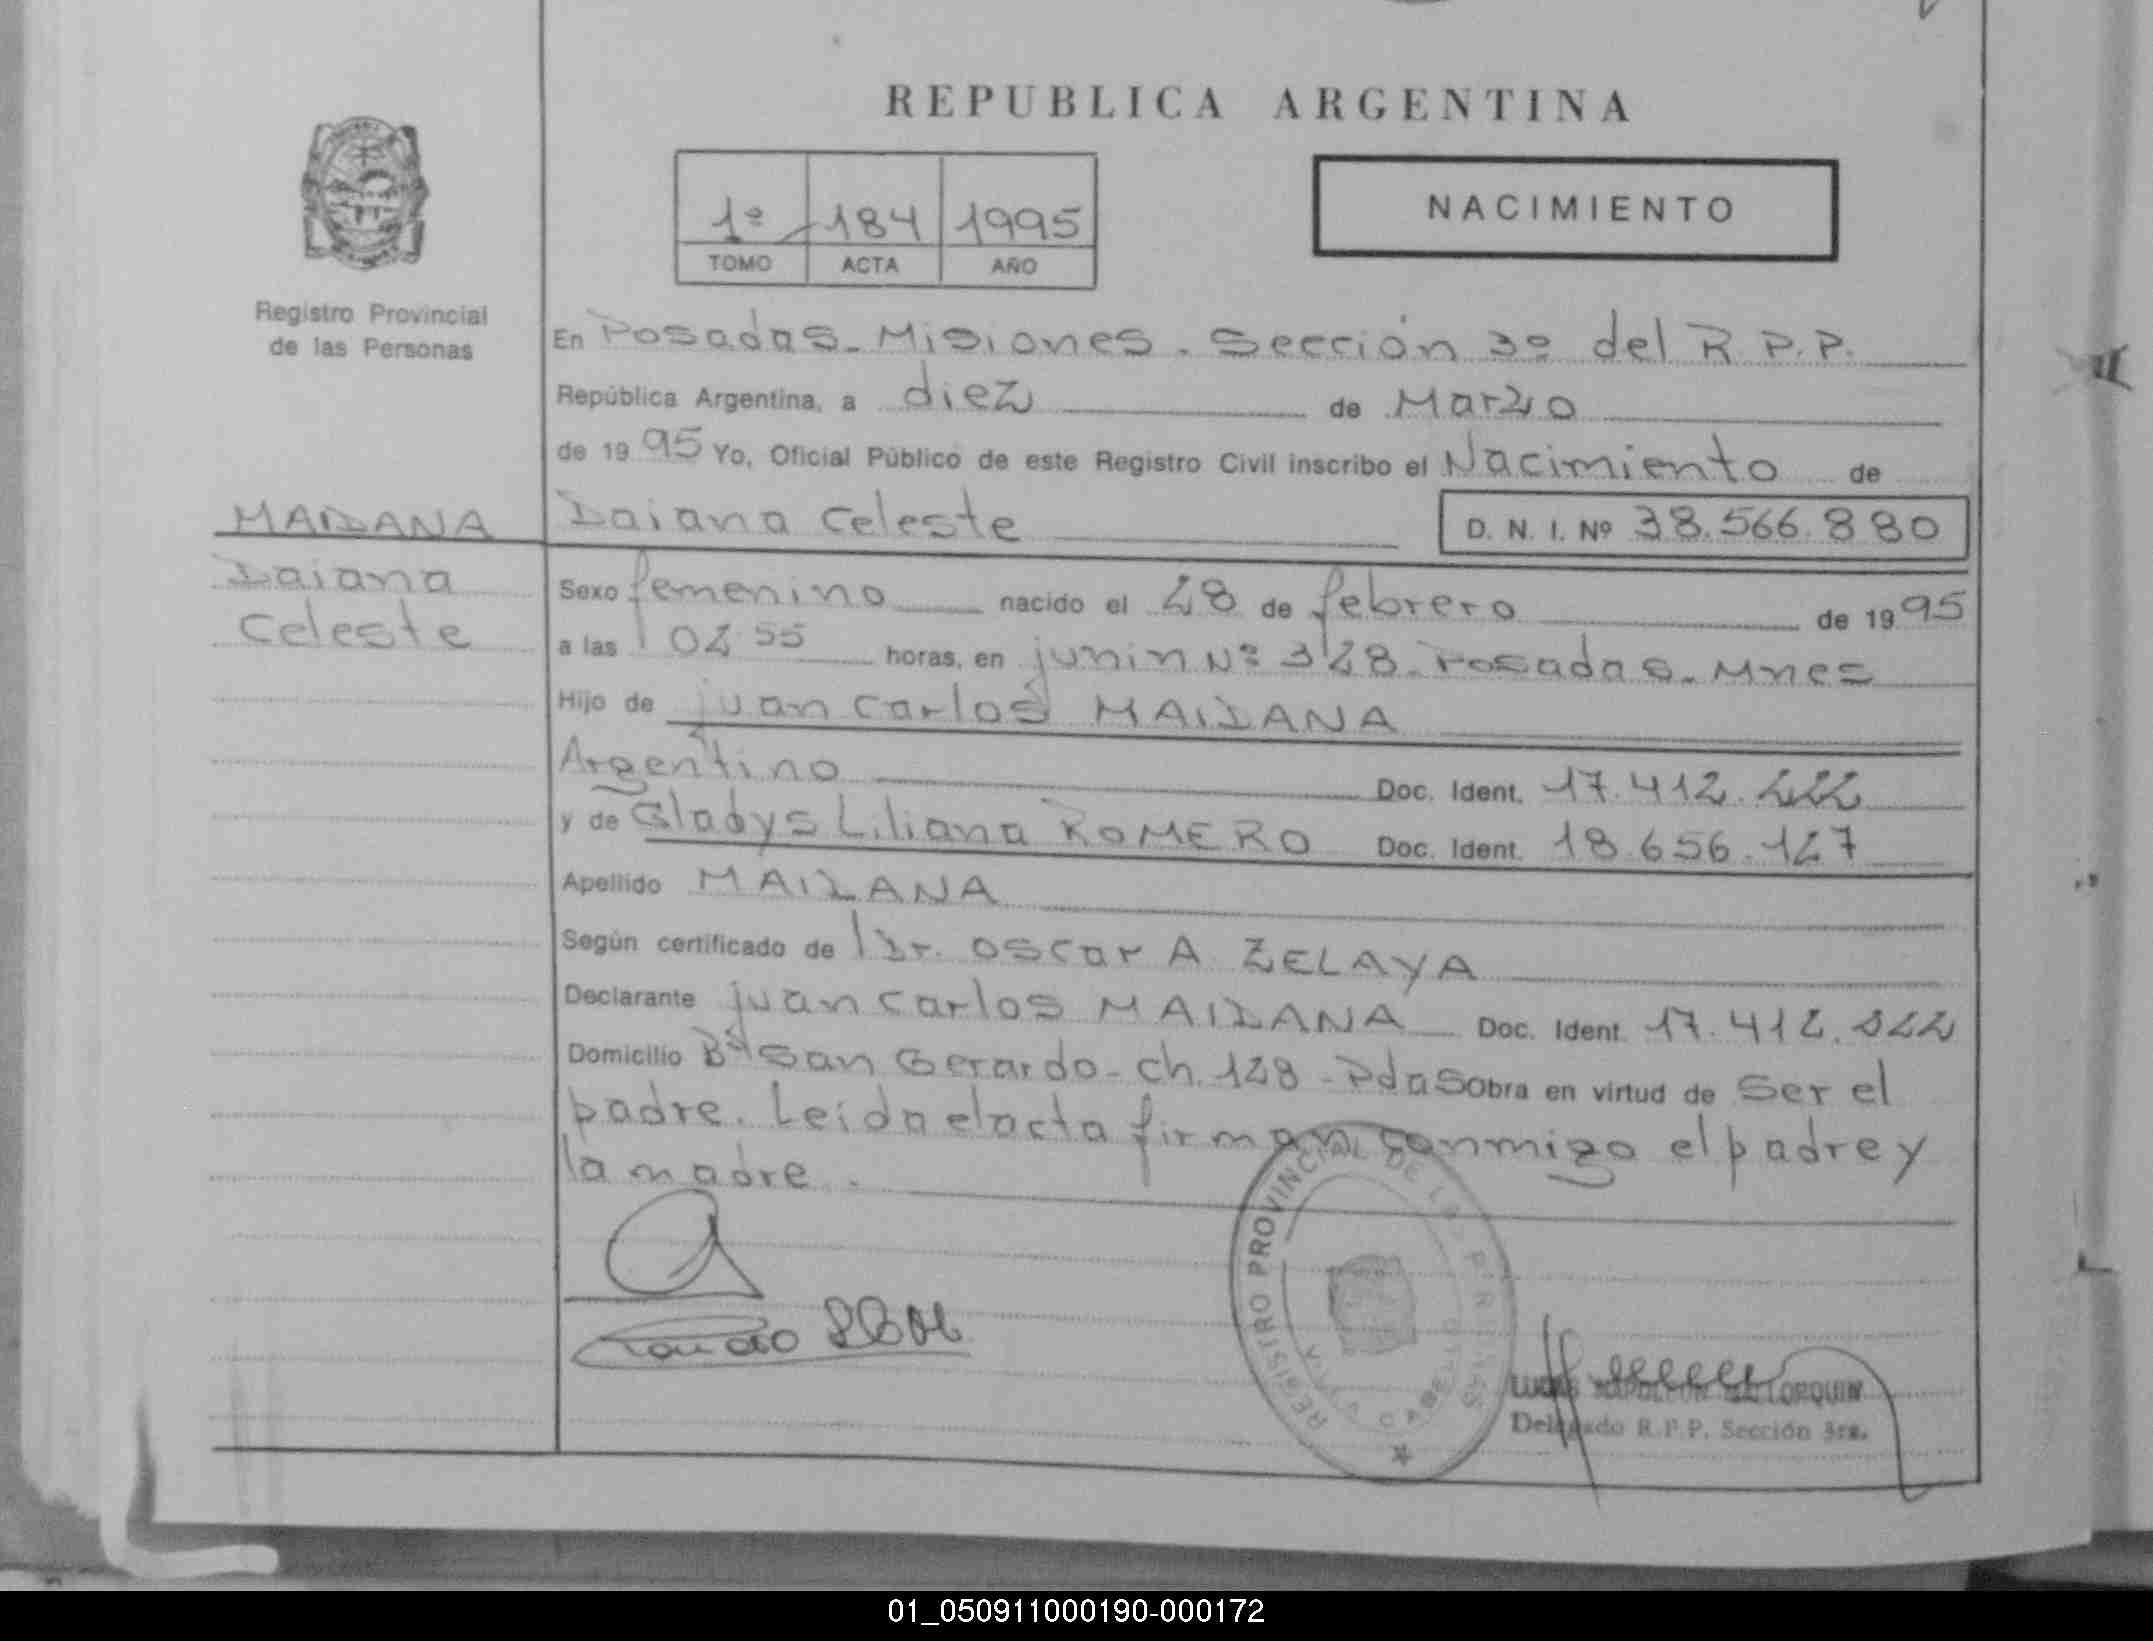 REPUBLICA ARGENTINA
1º 184 1995
TOMO ACTA AÑO
NACIMIENTO
Registro Provincial
de las Personas
En Posadas - Misiones. Sección 3º del R.P.P.
República Argentina, a diez de Marzo
de 1995 Yo, Oficial Público de este Registro Civil inscribo el Nacimiento de
MAIDANA
Daiana Celeste D. N. I. Nº 38.566.880
Daiana
Celeste
Sexo femenino nacido el 28 de febrero de 1995
a las 02 55 horas, en junin Nº 328 - Posadas - Mnes
Hijo de juan Carlos MAIDANA
Argentino Doc. Ident. 17.412.222
y de Gladys Liliana ROMERO Doc. Ident. 18.656.127
Apellido MAIDANA
Según certificado de Dr. Oscar A ZELAYA
Declarante juan Carlos MAIDANA Doc. Ident. 17.412.222
Domicilio Bº San Gerardo - Ch. 128 - Pdas obra en virtud de Ser el
padre. Leida el acta firman conmigo el padre y
la madre.
REGISTRO PROVINCIAL DE LAS PERSONAS
Delegado R.P.P. Sección 3ra.
01_050911000190-000172